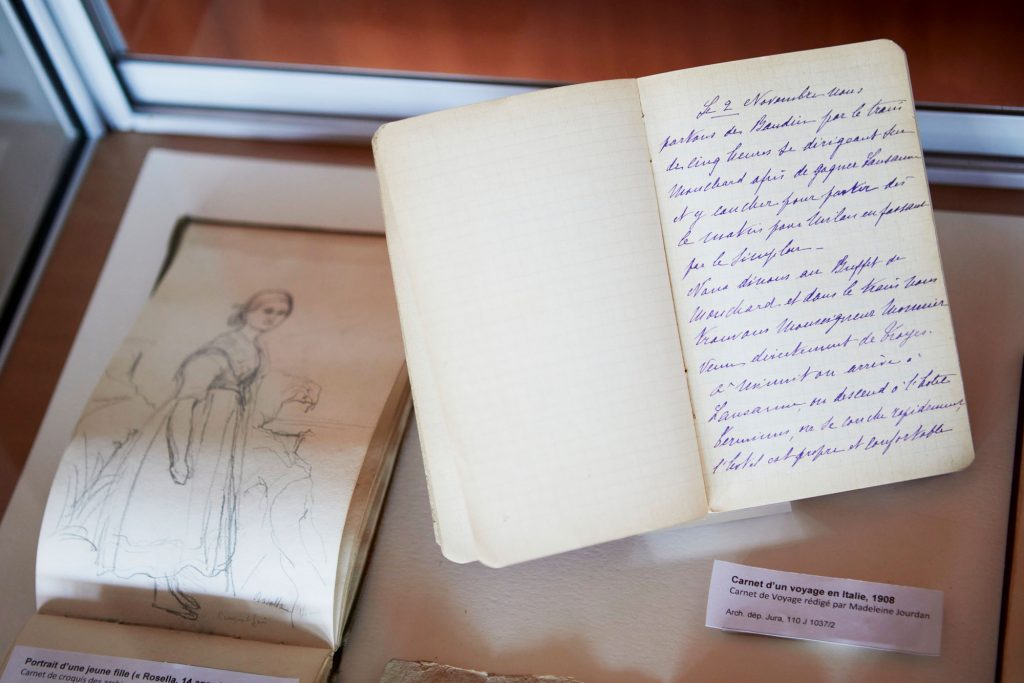 Le 2 Novembre nous
partons de Baudin par le train
de cinq heures se dirigeant sur
Mouchard afin de gagner Lausanne
et y coucher pour partir dès
le matin pour Milan en passant
par le Simplon_
Nous dinons au Buffet de
Mouchard et dans le train nous
trouvons Monseigneur
venu directement de Troyes.
à minuit on arrive à
Lausanne, on descend à l'hotel
Terminus, on se couche rapidement,
l'hotel est propre et confortable
Rosella
Carnet d'un voyage en Italie, 1908
Carnet de Voyage rédigé par Madeleine Jourdan
Arch. dép. Jura, 110 J 1037/2
Portrait d'une jeune fille (« Rosella, 14
Carnet de croquis des